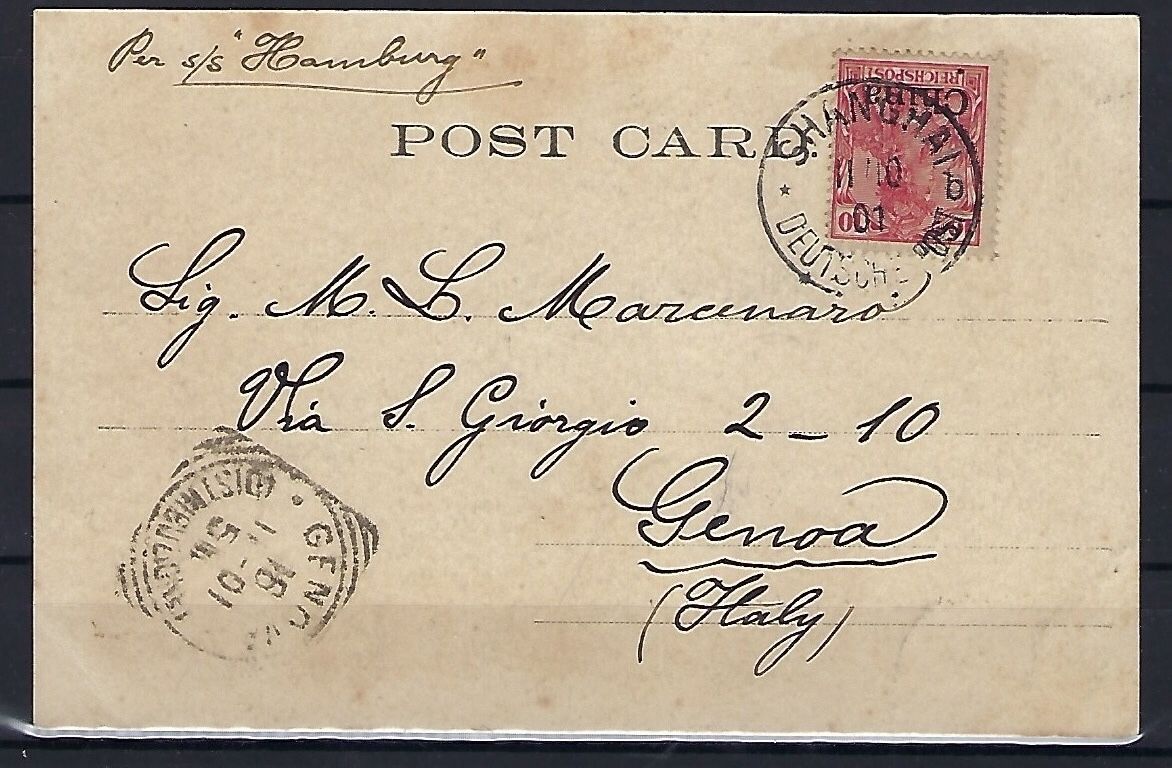 Per s/s "Hamburg"
POST CARD
REICHSPOST
China
10
SHANGHAI
11/10 b
01
* DEUTSCHE POST *
Sig. M. L. Marcenaro
Via S. Giorgio 2 - 10
Genoa
(Italy)
GENOVA
16
01